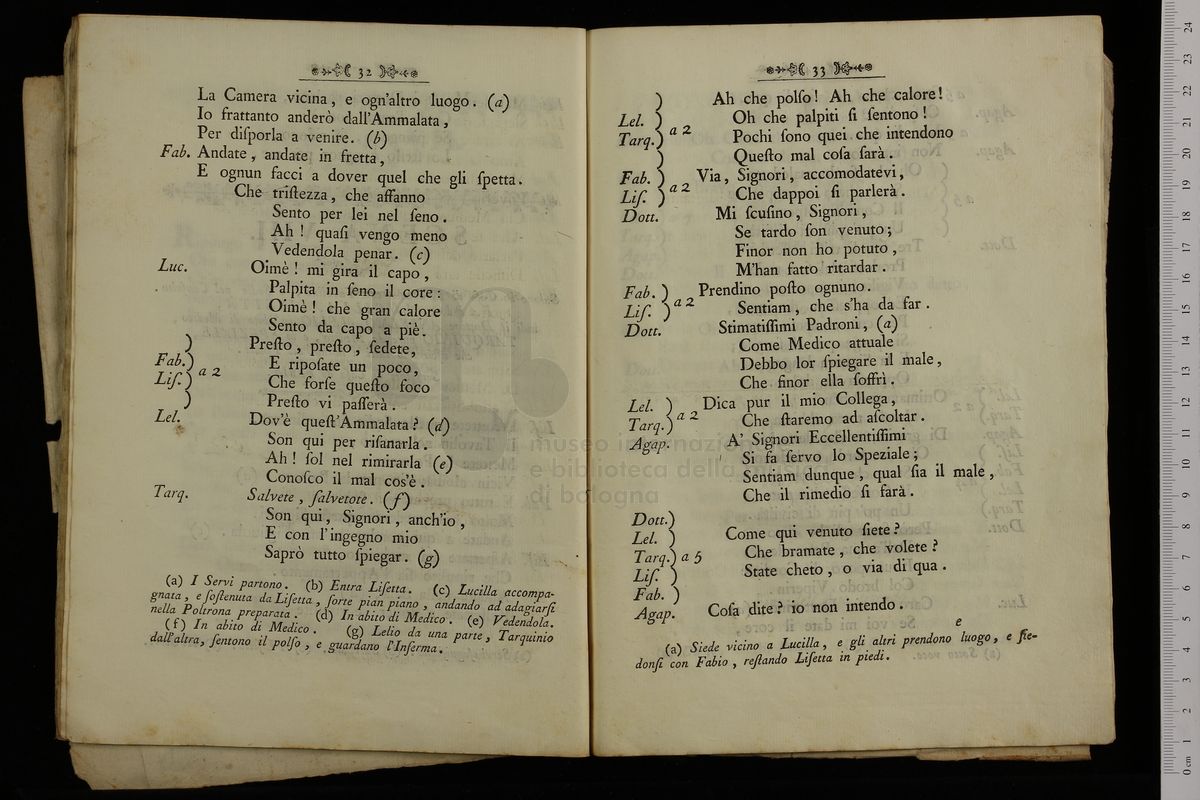 32
La Camera vicina, e ogn'altro luogo. (a)
Io frattanto anderò dall'Ammalata,
Per diſporla a venire. (b)
Fab. Andate, andate in fretta,
E ognun facci a dover quel che gli ſpetta.
Che triſtezza, che affanno
Sento per lei nel ſeno.
Ah! quaſi vengo meno
Vedendola penar. (c)
Luc. Oimè! mi gira il capo,
Palpita in ſeno il core:
Oimè! che gran calore
Sento da capo a piè.
Fab. Liſ. a 2 Preſto, preſto, ſedete,
E ripoſate un poco,
Che forſe queſto foco
Preſto vi paſſerà.
Lel. Dov'è queſt'Ammalata? (d)
Son qui per riſanarla.
Ah! ſol nel rimirarla (e)
Conoſco il mal cos'è.
Tarq. Salvete, ſalvetote. (f)
Son qui, Signori, anch'io,
E con l'ingegno mio
Saprò tutto ſpiegar. (g)
(a) I Servi partono. (b) Entra Liſetta. (c) Lucilla accompa-
gnata, e ſoſtenuta da Liſetta, ſorte pian piano, andando ad adagiarſi
nella Poltrona preparata. (d) In abito di Medico. (e) Vedendola.
(f) In abito di Medico. (g) Lelio da una parte, Tarquinio
dall'altra, ſentono il polſo, e guardano l'Inferma.
33
Lel. Tarq. a 2 Ah che polſo! Ah che calore!
Oh che palpiti ſi ſentono!
Pochi ſono quei che intendono
Queſto mal coſa ſarà.
Fab. Liſ. a 2 Via, Signori, accomodatevi,
Che dappoi ſi parlerà.
Dott. Mi ſcuſino, Signori,
Se tardo ſon venuto;
Finor non ho potuto,
M'han fatto ritardar.
Fab. Liſ. a 2 Prendino poſto ognuno.
Sentiam, che s'ha da far.
Dott. Stimatiſſimi Padroni, (a)
Come Medico attuale
Debbo lor ſpiegare il male,
Che finor ella ſoffrì.
Lel. Tarq. a 2 Dica pur il mio Collega,
Che ſtaremo ad aſcoltar.
Agap. A' Signori Eccellentiſſimi
Si fa ſervo lo Speziale;
Sentiam dunque, qual ſia il male,
Che il rimedio ſi farà.
Dott. Lel. Tarq. Liſ. Fab. a 5 Come qui venuto ſiete?
Che bramate, che volete?
State cheto, o via di qua.
Agap. Coſa dite? io non intendo.
e
(a) Siede vicino a Lucilla, e gli altri prendono luogo, e ſie-
donſi con Fabio, reſtando Liſetta in piedi.
museo internazionale
e biblioteca della musica
di bologna